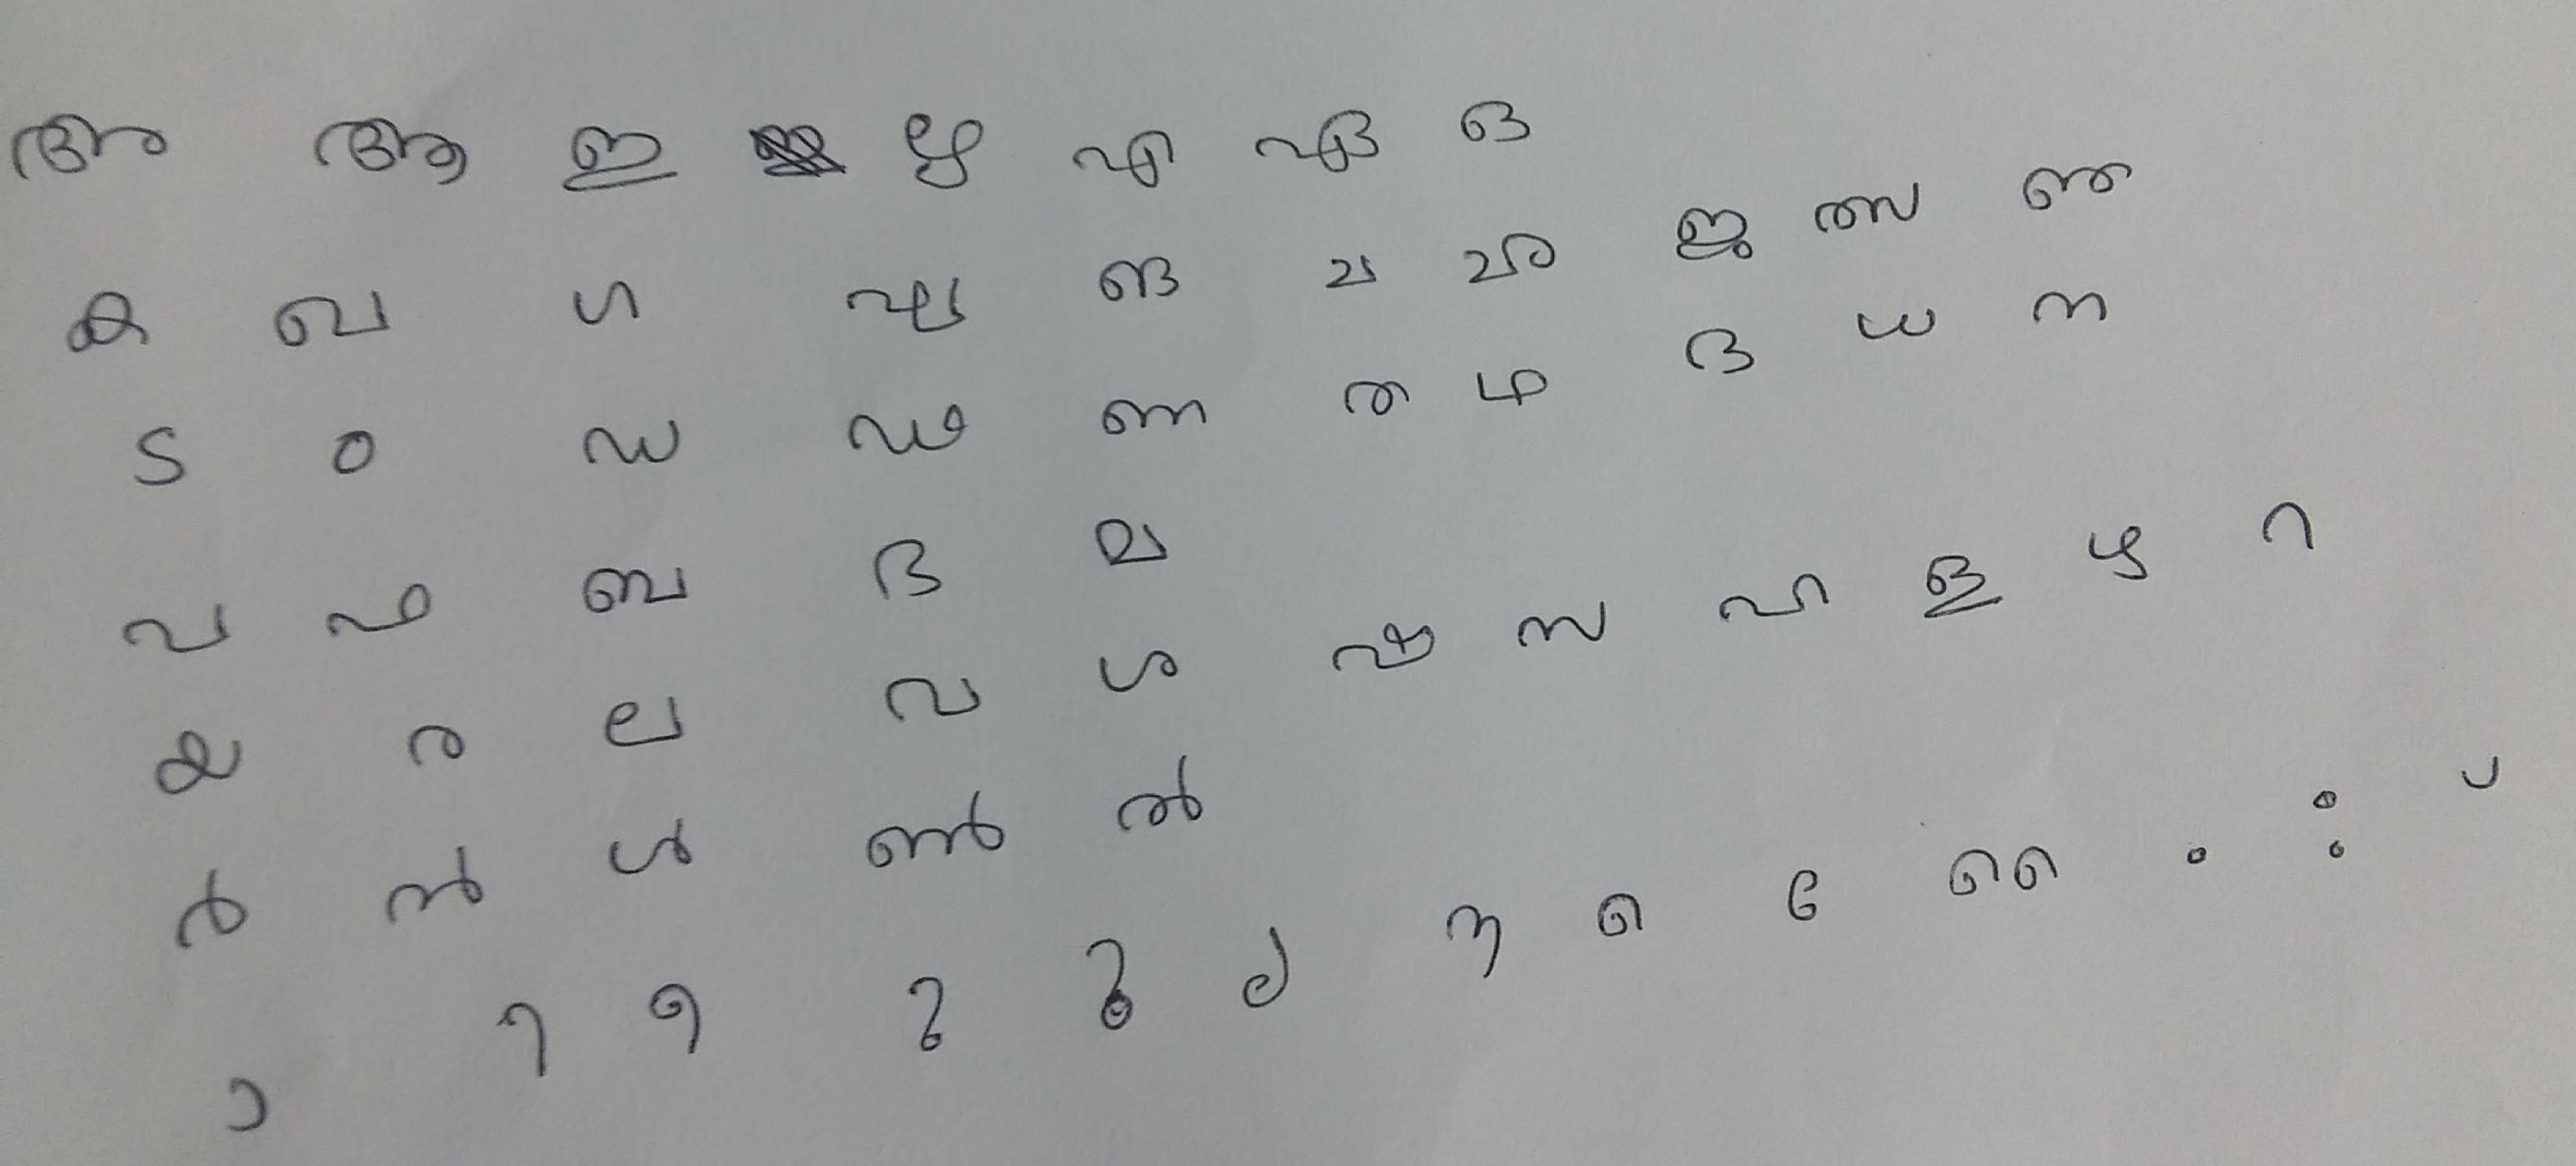 അ ആ ഇ ഋ എ ഏ ഒ
ക ഖ ഗ ഘ ങ ച ഛ ജ ഝ ഞ
ട ഠ ഡ ഢ ണ ത ഥ ദ ധ ന
പ ഫ ബ ഭ മ
യ ര ല വ ശ ഷ സ ഹ ള ഴ റ
ർ ൻ ൾ ൺ ൽ
ാ ി ീ ു ൂ ൃ െ േ ൈ ം ഃ ്